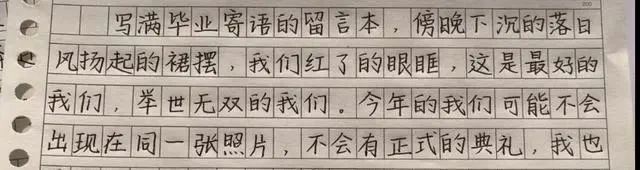 写满毕业寄语的留言本，傍晚下沉的落日
风扬起的裙摆，我们红了的眼眶，这是最好的
我们，举世无双的我们。今年的我们可能不会
出现在同一张照片，不会有正式的典礼，我也